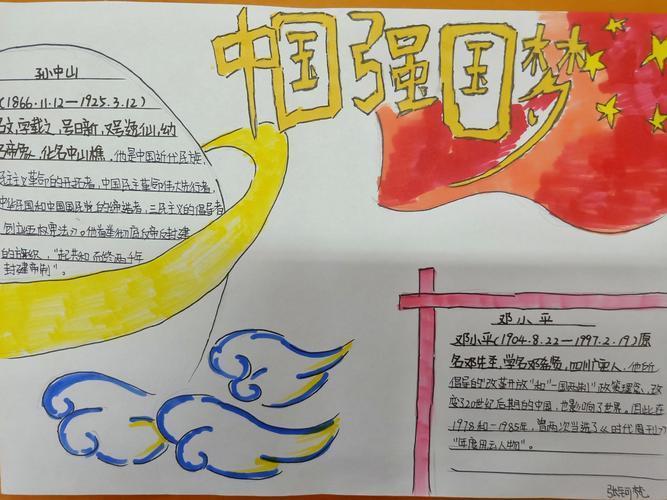 中国强国梦
孙中山
(1866.11.12—1925.3.12)
名文,字载之,号日新,又号逸仙,幼
名帝象,化名中山樵,他是中国近代民族
民主主义革命的开拓者,中国民主革命伟大先行者,
中华民国和中国国民党的缔造者,三民主义的倡导者
创立五权宪法》。他首举彻底反帝反封建
的旗帜,“起共和而终两千年
封建帝制”。
邓小平
邓小平(1904.8.22—1997.2.19)原
名邓先圣,学名邓希贤,四川广安人,他所
倡导的“改革开放”和“一国两制”政策理念,改
变了20世纪后期的中国,也影响了世界。因此在
1978和一1985年,曾两次当选了《时代周刊》
“年度风云人物”。